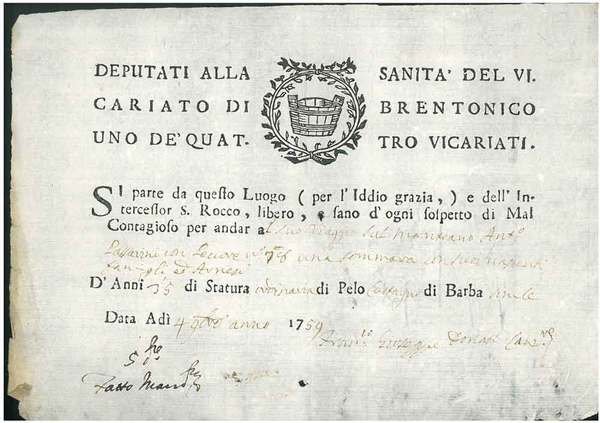 DEPUTATI ALLA SANITA' DEL VI.
CARIATO DI BRENTONICO
UNO DE' QUAT- TRO VICARIATI.
SI parte da questo Luogo ( per l'Iddio grazia, ) e dell' In-
tercessor S. Rocco, libero, e sano d'ogni sospetto di Mal
Contagioso per andar al suo viaggio sul mantoano Ant.o
con Pecore n.o una sommara con suoi
ed Arnesi
D' Anni 35 di Statura ordinaria di Pelo Castagno di Barba simile
Data Adì 4 9bre anno 1759